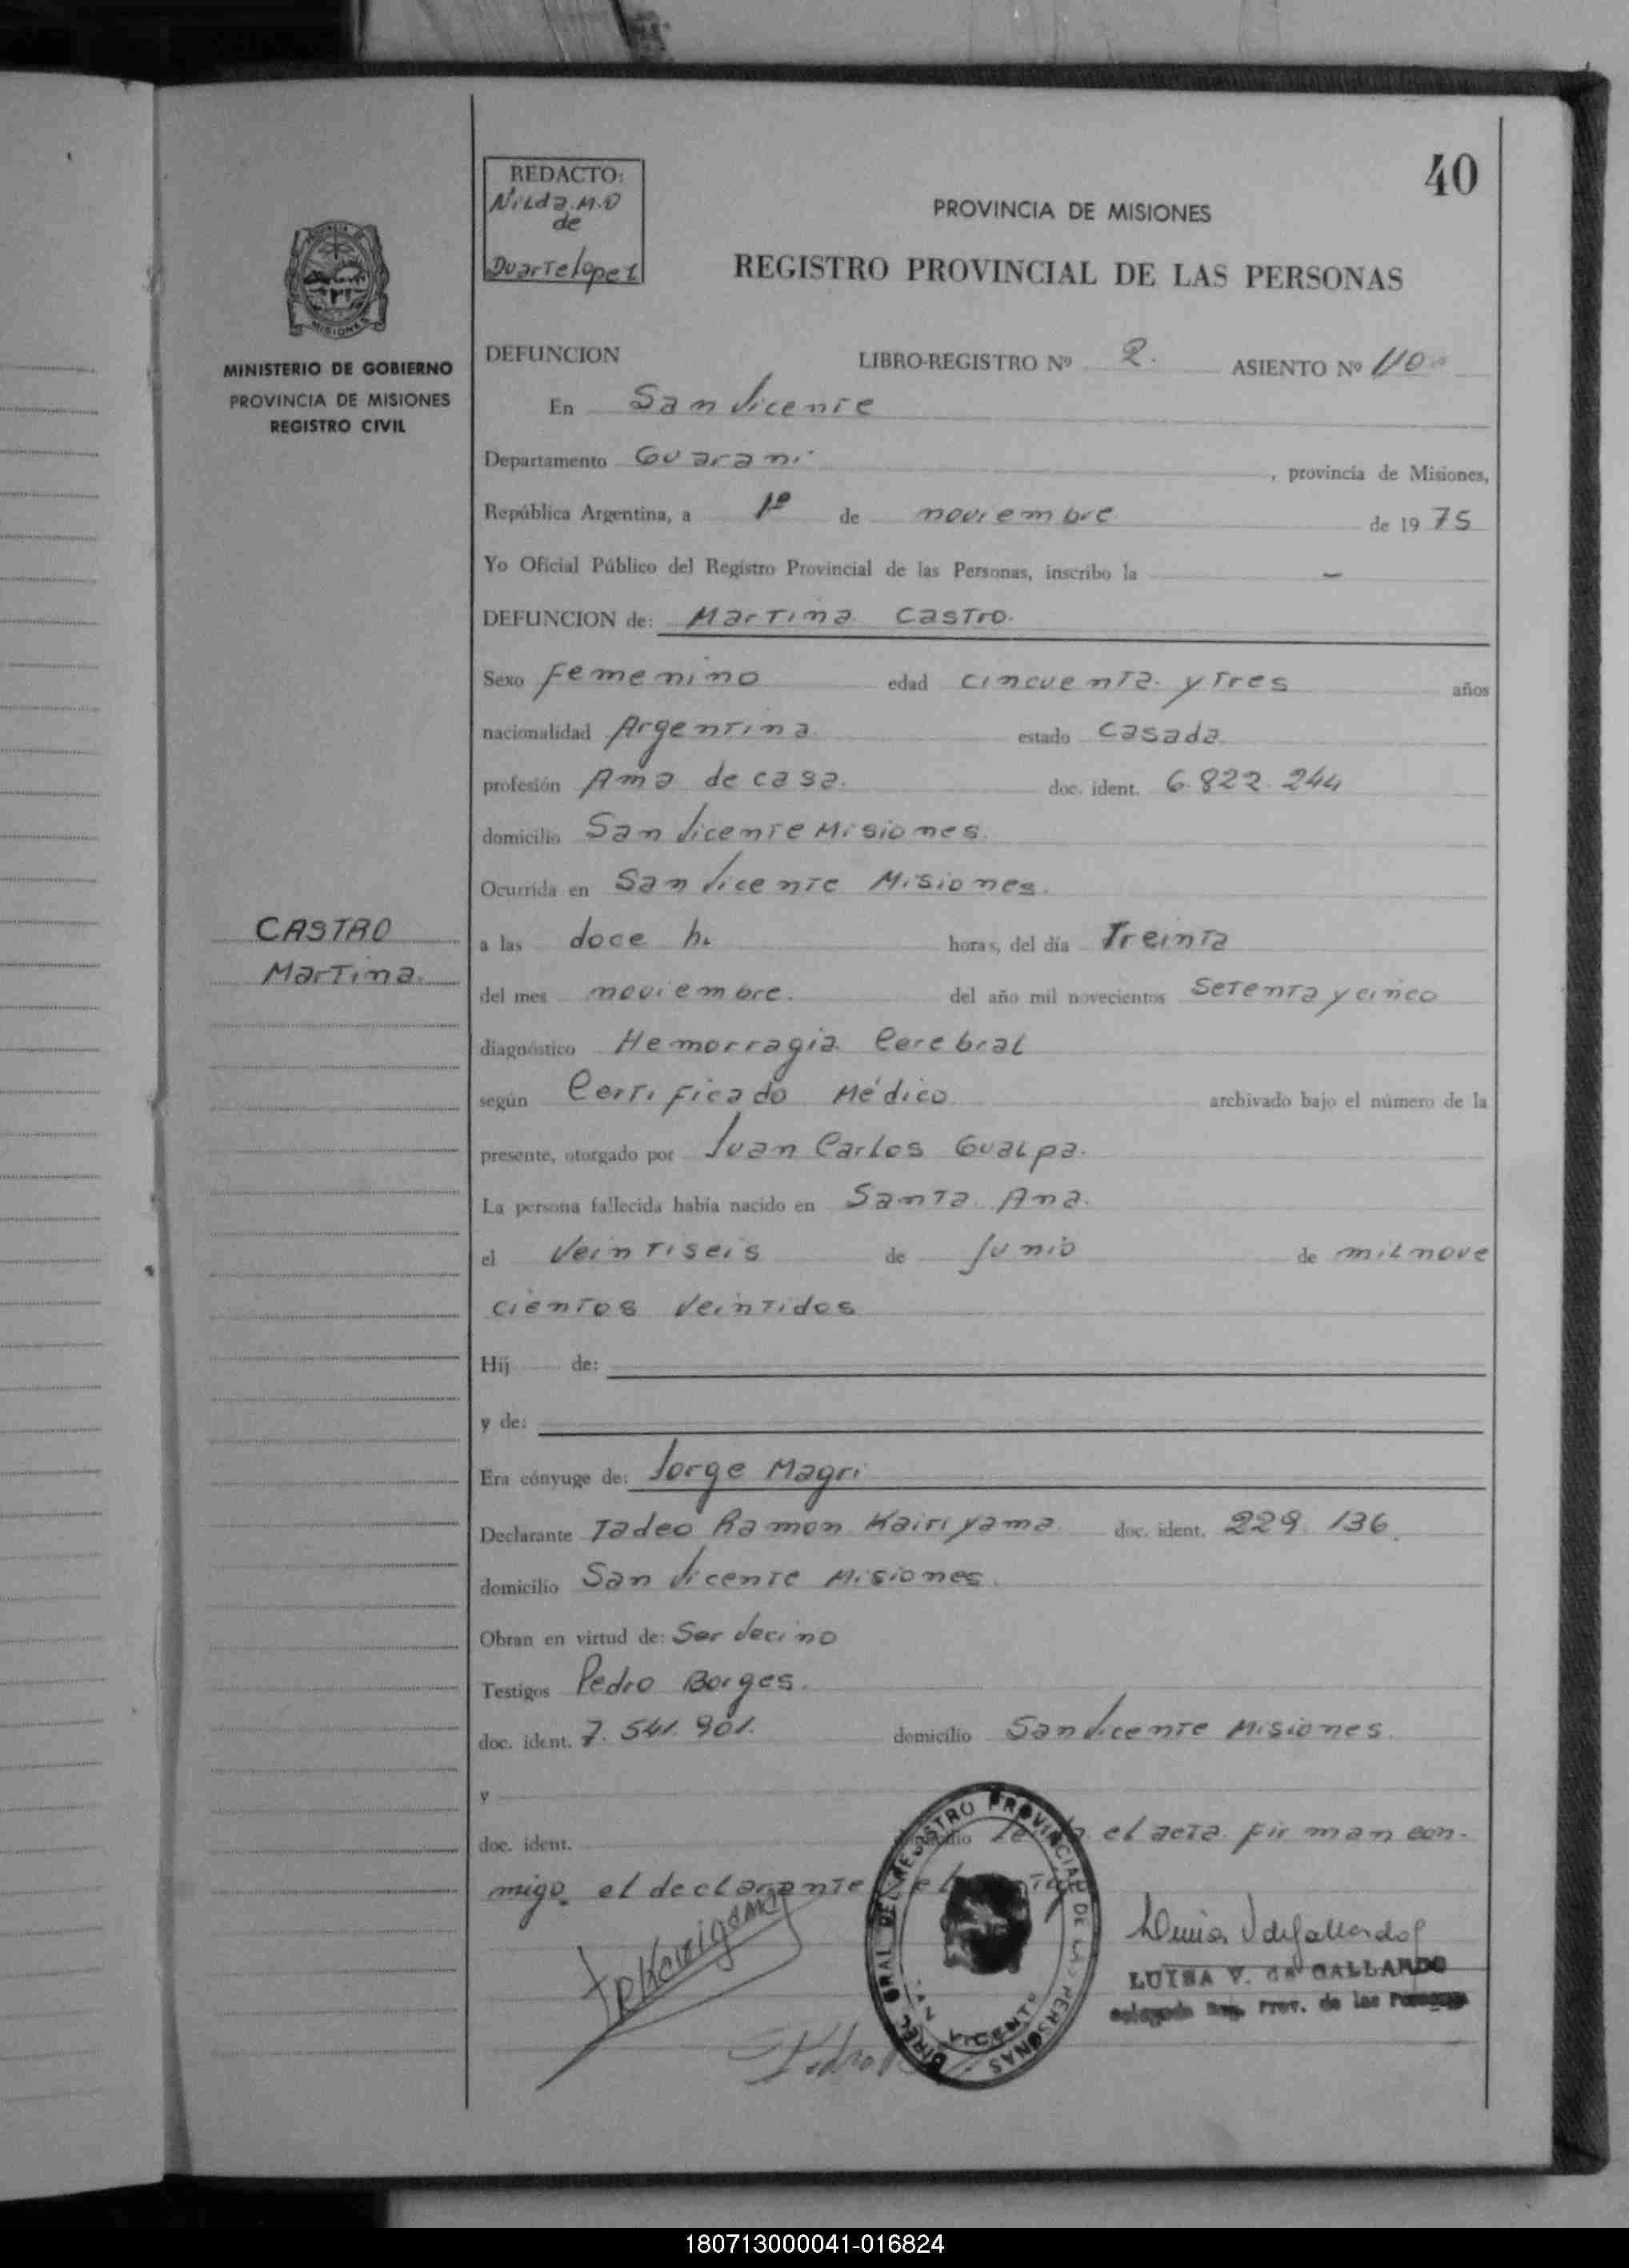 40
REDACTO:
Nilda.M.D
de
Duartelopez
PROVINCIA DE MISIONES
REGISTRO PROVINCIAL DE LAS PERSONAS
MISIONES
MINISTERIO DE GOBIERNO
PROVINCIA DE MISIONES
REGISTRO CIVIL
DEFUNCION LIBRO-REGISTRO Nº 2. ASIENTO Nº 110
En San Vicente
Departamento Guarani , provincia de Misiones,
República Argentina, a 1º de noviembre de 1975
Yo Oficial Público del Registro Provincial de las Personas, inscribo la —
DEFUNCION de: Martina Castro.
Sexo Femenino edad cincuenta y Tres años
nacionalidad Argentina estado casada
profesión Ama de casa. doc. ident. 6.822.244
domicilio San Vicente Misiones.
Ocurrida en San Vicente Misiones.
CASTRO
Martina.
a las doce h. horas, del día Treinta
del mes noviembre. del año mil novecientos Setenta y cinco
diagnóstico Hemorragia Cerebral
según Certificado Médico archivado bajo el número de la
presente, otorgado por Juan Carlos Gualpa.
La persona fallecida había nacido en Santa Ana.
el Veintiseis de Junio de mil nove
cientos Veintidos
Hij de:
y de:
Era cónyuge de: Jorge Magri
Declarante Tadeo Ramon Kairiyama doc. ident. 229.136.
domicilio San Vicente Misiones.
Obran en virtud de: Ser Vecino
Testigos Pedro Borges.
doc. ident. 7.541.901. domicilio San Vicente Misiones.
y
doc. ident. el acta firman con-
migo el declarante
DIREC. GRAL DEL REGISTRO PROVINCIAL DE LAS PERSONAS
SAN VICENTE
LUISA V. de GALLARDO
Delegada Reg. Prov. de las Personas
Pedro
180713000041-016824